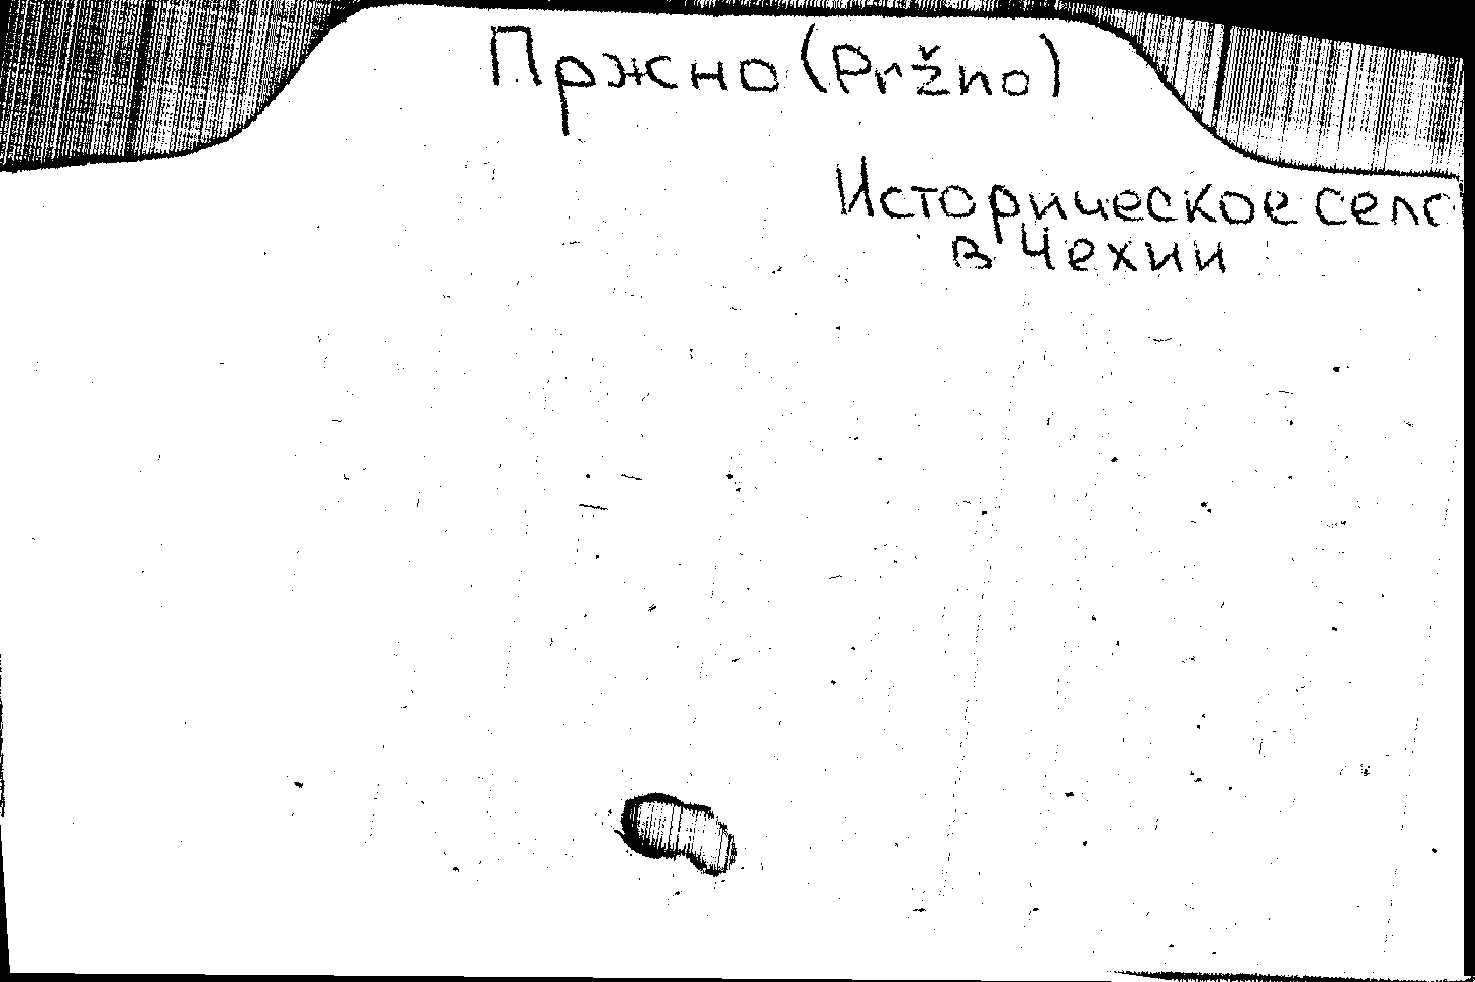 Пржно (Pržno)
Историческое село
в Чехии